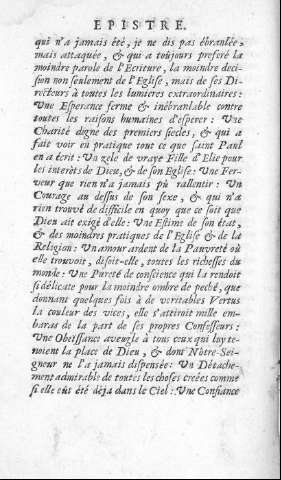 EPISTRE.
qui n'a jamais été, je ne dis pas ébranlée,
mais attaquée, & qui a toûjours preferé la
moindre parole de l'Ecriture, la moindre deci-
sion non seulement de l'Eglise, mais de ses Di-
recteurs à toutes les lumieres extraordinaires :
Une Esperance ferme & inébranlable contre
toutes les raisons humaines d'esperer : Une
Charité digne des premiers siecles, & qui a
fait voir en pratique tout ce que saint Paul
en a écrit : Un zele de vraye Fille d'Elie pour
les interêts de Dieu, & de son Eglise : Une Fer-
veur que rien n'a jamais pû rallentir : Un
Courage au dessus de son sexe, & qui n'a
rien trouvé de difficile en quoy que ce soit que
Dieu ait exigé d'elle : Une Estime de son état,
& des moindres pratiques de l'Eglise & de la
Religion : Un amour ardent de la Pauvreté où
elle trouvoit, disoit-elle, toutes les richesses du
monde : Une Pureté de conscience qui la rendoit
si délicate pour la moindre ombre de peché, que
donnant quelques fois à de veritables Vertus
la couleur des vices, elle s'attiroit mille em-
baras de la part de ses propres Confesseurs :
Une Obeïssance aveugle à tous ceux qui luy te-
noient la place de Dieu, & dont Nôtre-Sei-
gneur ne l'a jamais dispensée : Un Détache-
ment admirable de toutes les choses creées comme
si elle eût été déja dans le Ciel : Une Confiance